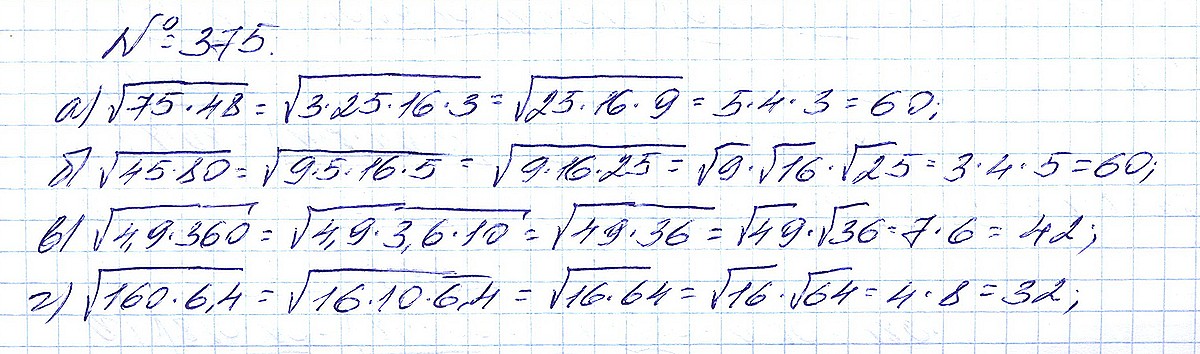 № 375.
а) √75·48 = √3·25·16·3 = √25·16·9 = 5·4·3 = 60;
б) √45·80 = √9·5·16·5 = √9·16·25 = √9·√16·√25 = 3·4·5 = 60;
в) √4,9·360 = √4,9·3,6·10 = √49·36 = √49·√36 = 7·6 = 42;
г) √160·6,4 = √16·10·6,4 = √16·64 = √16·√64 = 4·8 = 32;